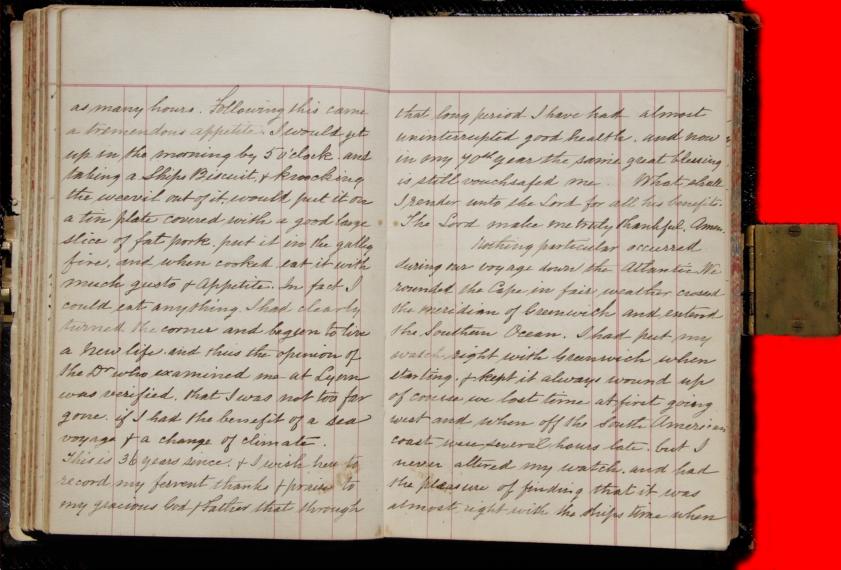 as many hours. Following this came
a tremendous appetite. I would get
up in the morning by 5 o'clock. and
taking a Ships Biscuit, & knocking
the weevil out of it, would put it on
a tin plate covered with a good large
slice of fat pork. put it in the galley
fire, and when cooked eat it with
much gusto & Appetite. In fact I
could eat anything. I had clearly
turned the corner and began to live
a new life. and thus the opinion of
the Dr who examined me at Lynn
was verified, that I was not too far
gone. if I had the benefit of a sea
voyage & a change of climate.
This is 36 years since. & I wish here to
record my fervent thanks & praise to
my gracious God & Father that through
that long period I have had almost
uninterrupted good health. and now
in my 70th year the same great blessing
is still vouchsafed me. What shall
I render unto the Lord for all his benefits.
The Lord make me truly thankful. Amen.
Nothing particular occurred
during our voyage down the Atlantic. We
rounded the Cape in fair weather crossed
the meridian of Greenwich and entered
the Southern Ocean. I had put my
watch right with Greenwich when
starting. & kept it always wound up
of course we lost time at first going
west and when off the South American
coast were several hours late. but I
never altered my watch. and had
the pleasure of finding that it was
almost right with the ships time when